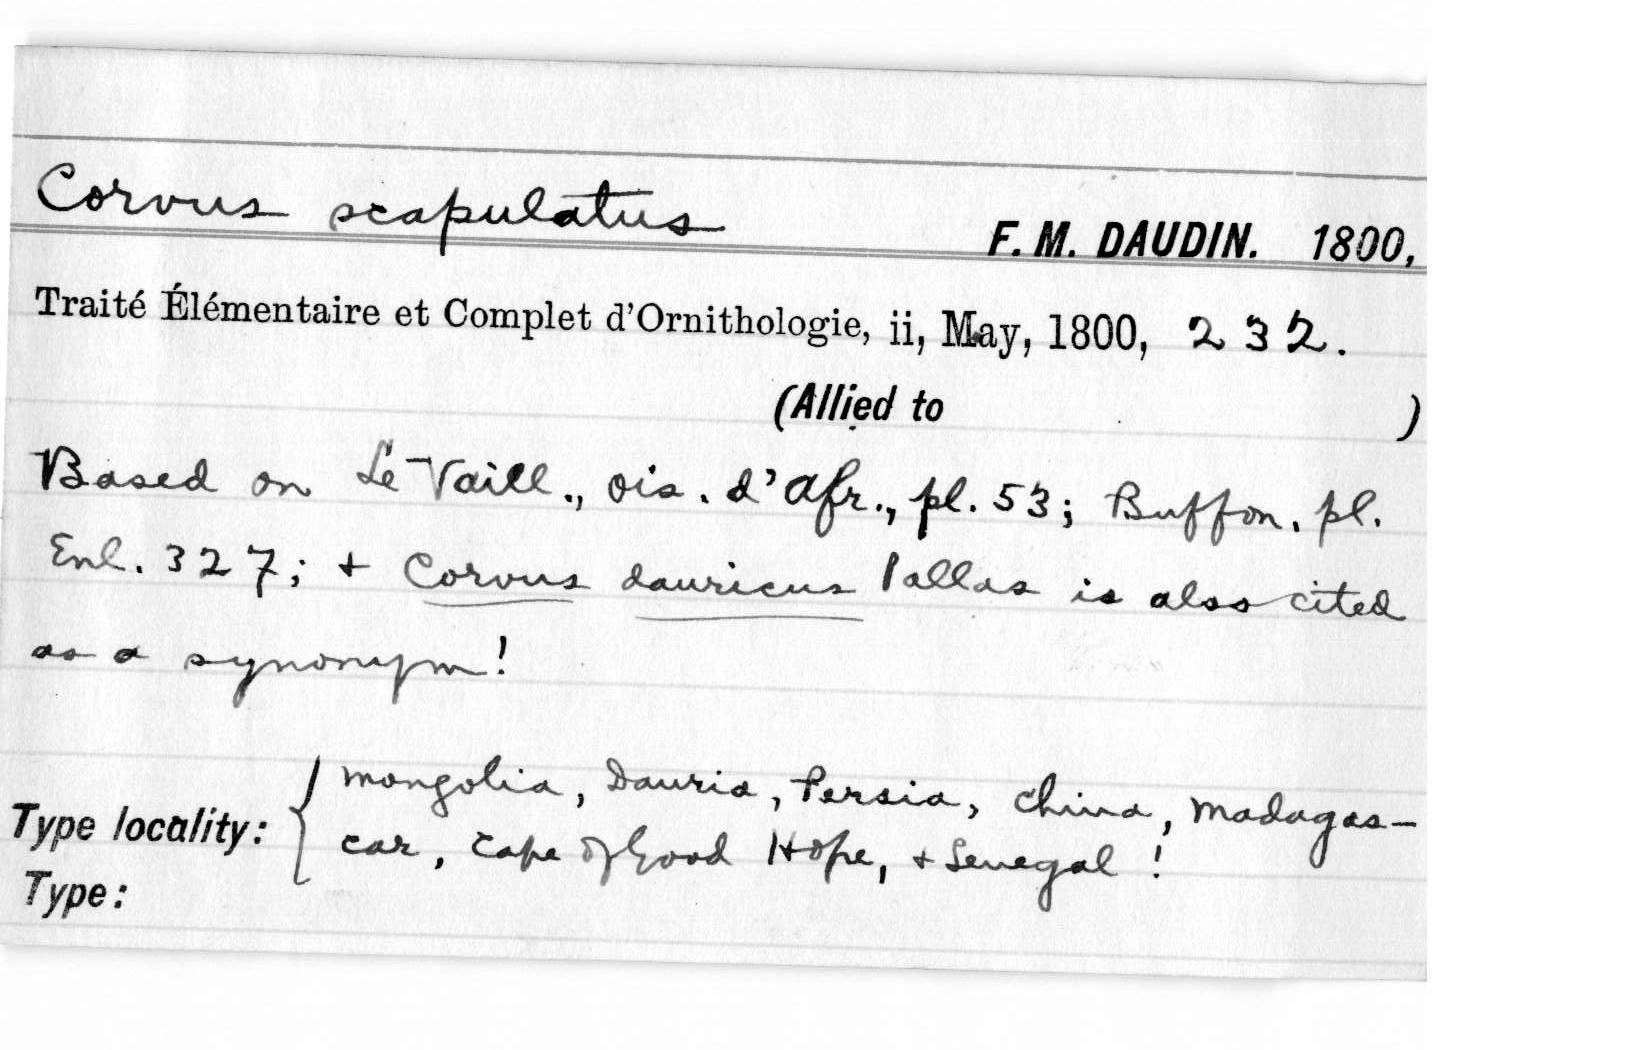 Corvus scapulatus F. M. DAUDIN. 1800,
Traité Élémentaire et Complet d'Ornithologie, ii, May, 1800, 232.
(Allied to )
Based on Le Vaill., Ois. d'Afr., pl. 53; Buffon. pl.
Enl. 327; + Corvus dauricus Pallas is also cited
as a synonym!
Type locality: { Mongolia, Dauria, Persia, China, Madagas-
car, Cape of Good Hope, + Senegal!
Type: